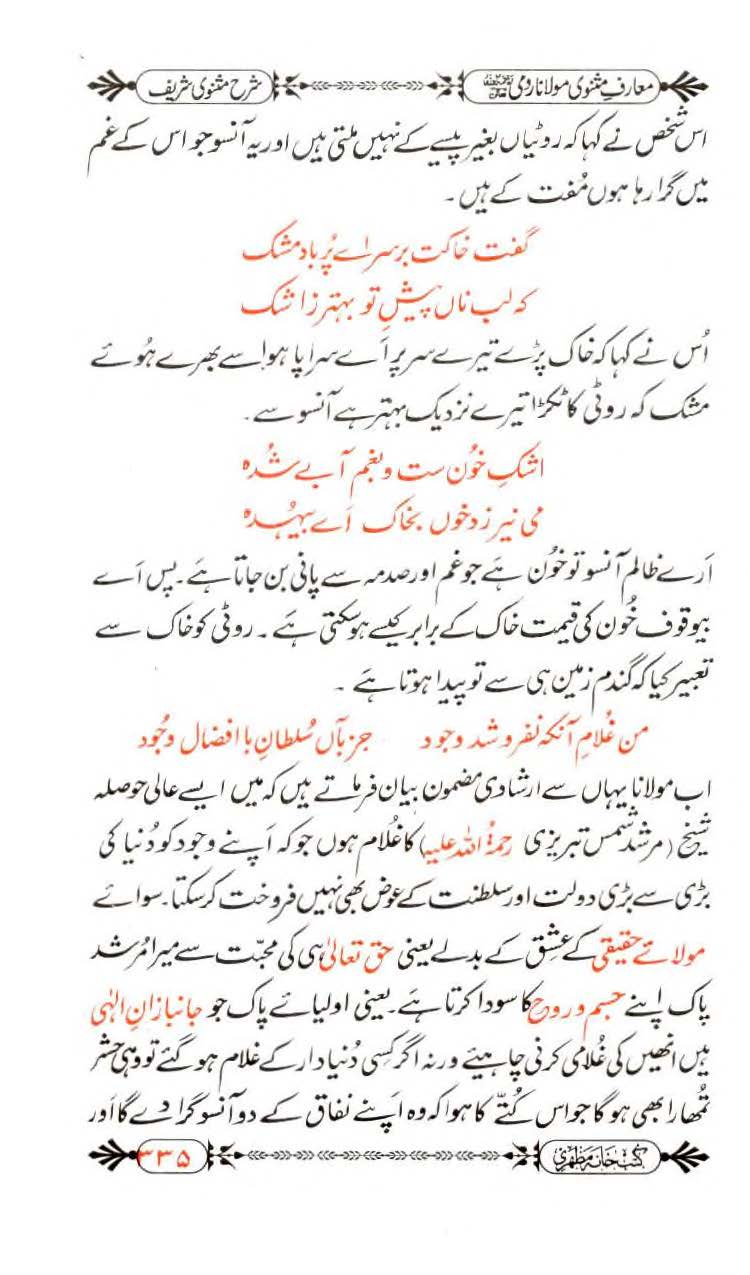 معارفِ مثنوی مولانا رومی شرح مثنوی شریف
اس شخص نے کہا کہ روٹیاں بغیر پیسے کے نہیں ملتی ہیں اور یہ آنسو جو اس کے غم
میں گرا رہا ہوں مُفت کے ہیں ۔
گفت خاکت برسر اے پُر باد مشک
کہ لب ناں پیشِ تو بہتر ز اشک
اُس نے کہا کہ خاک پڑے تیرے سر پر اَے سراپا ہوا سے بھرے ہُوئے
مشک کہ روٹی کا ٹکڑا تیرے نزدیک بہتر ہے آنسو سے ۔
اشکِ خُون ست و بغم آبے شُدہ
می نیرزد خوں بخاک اَے بیہُدہ
اَرے ظالم آنسو تو خُون ہَے جو غم اور صدمہ سے پانی بن جاتا ہَے ۔ پس اَے
بیوقوف خُون کی قیمت خاک کے برابر کیسے ہوسکتی ہَے ۔ روٹی کو خاک سے
تعبیر کیا کہ گندم زمین ہی سے تو پیدا ہوتا ہَے ۔
من غُلامِ آنکہ نفروشد وجود جز بآں سُلطانِ با افضال وجُود
اب مولانا یہاں سے ارشادی مضمون بیان فرماتے ہیں کہ میں ایسے عالی حوصلہ
شیخ (مرشد شمس تبریزی رحمۃُ اللہ علیہ) کا غُلام ہوں جو کہ اَپنے وجود کو دُنیا کی
بڑی سے بڑی دولت اور سلطنت کے عوض بھی نہیں فروخت کرسکتا۔ سوائے
مولائے حقیقی کے عشق کے بدلے یعنی حق تعالیٰ ہی کی محبّت سے میرا مُرشد
پاک اپنے جسم و روح کا سودا کرتا ہَے۔ یعنی اولیائے پاک جو جانبازانِ الٰہی
ہیں انھیں کی غُلامی کرنی چاہیئے ورنہ اگر کسی دُنیا دار کے غلام ہوگئے تو وہی حشر
تُمھارا بھی ہوگا جو اس کُتّے کا ہوا کہ وہ اَپنے نفاق کے دو آنسو گرا دے گا اَور
کتب خانہ مظہری ۳۳۵